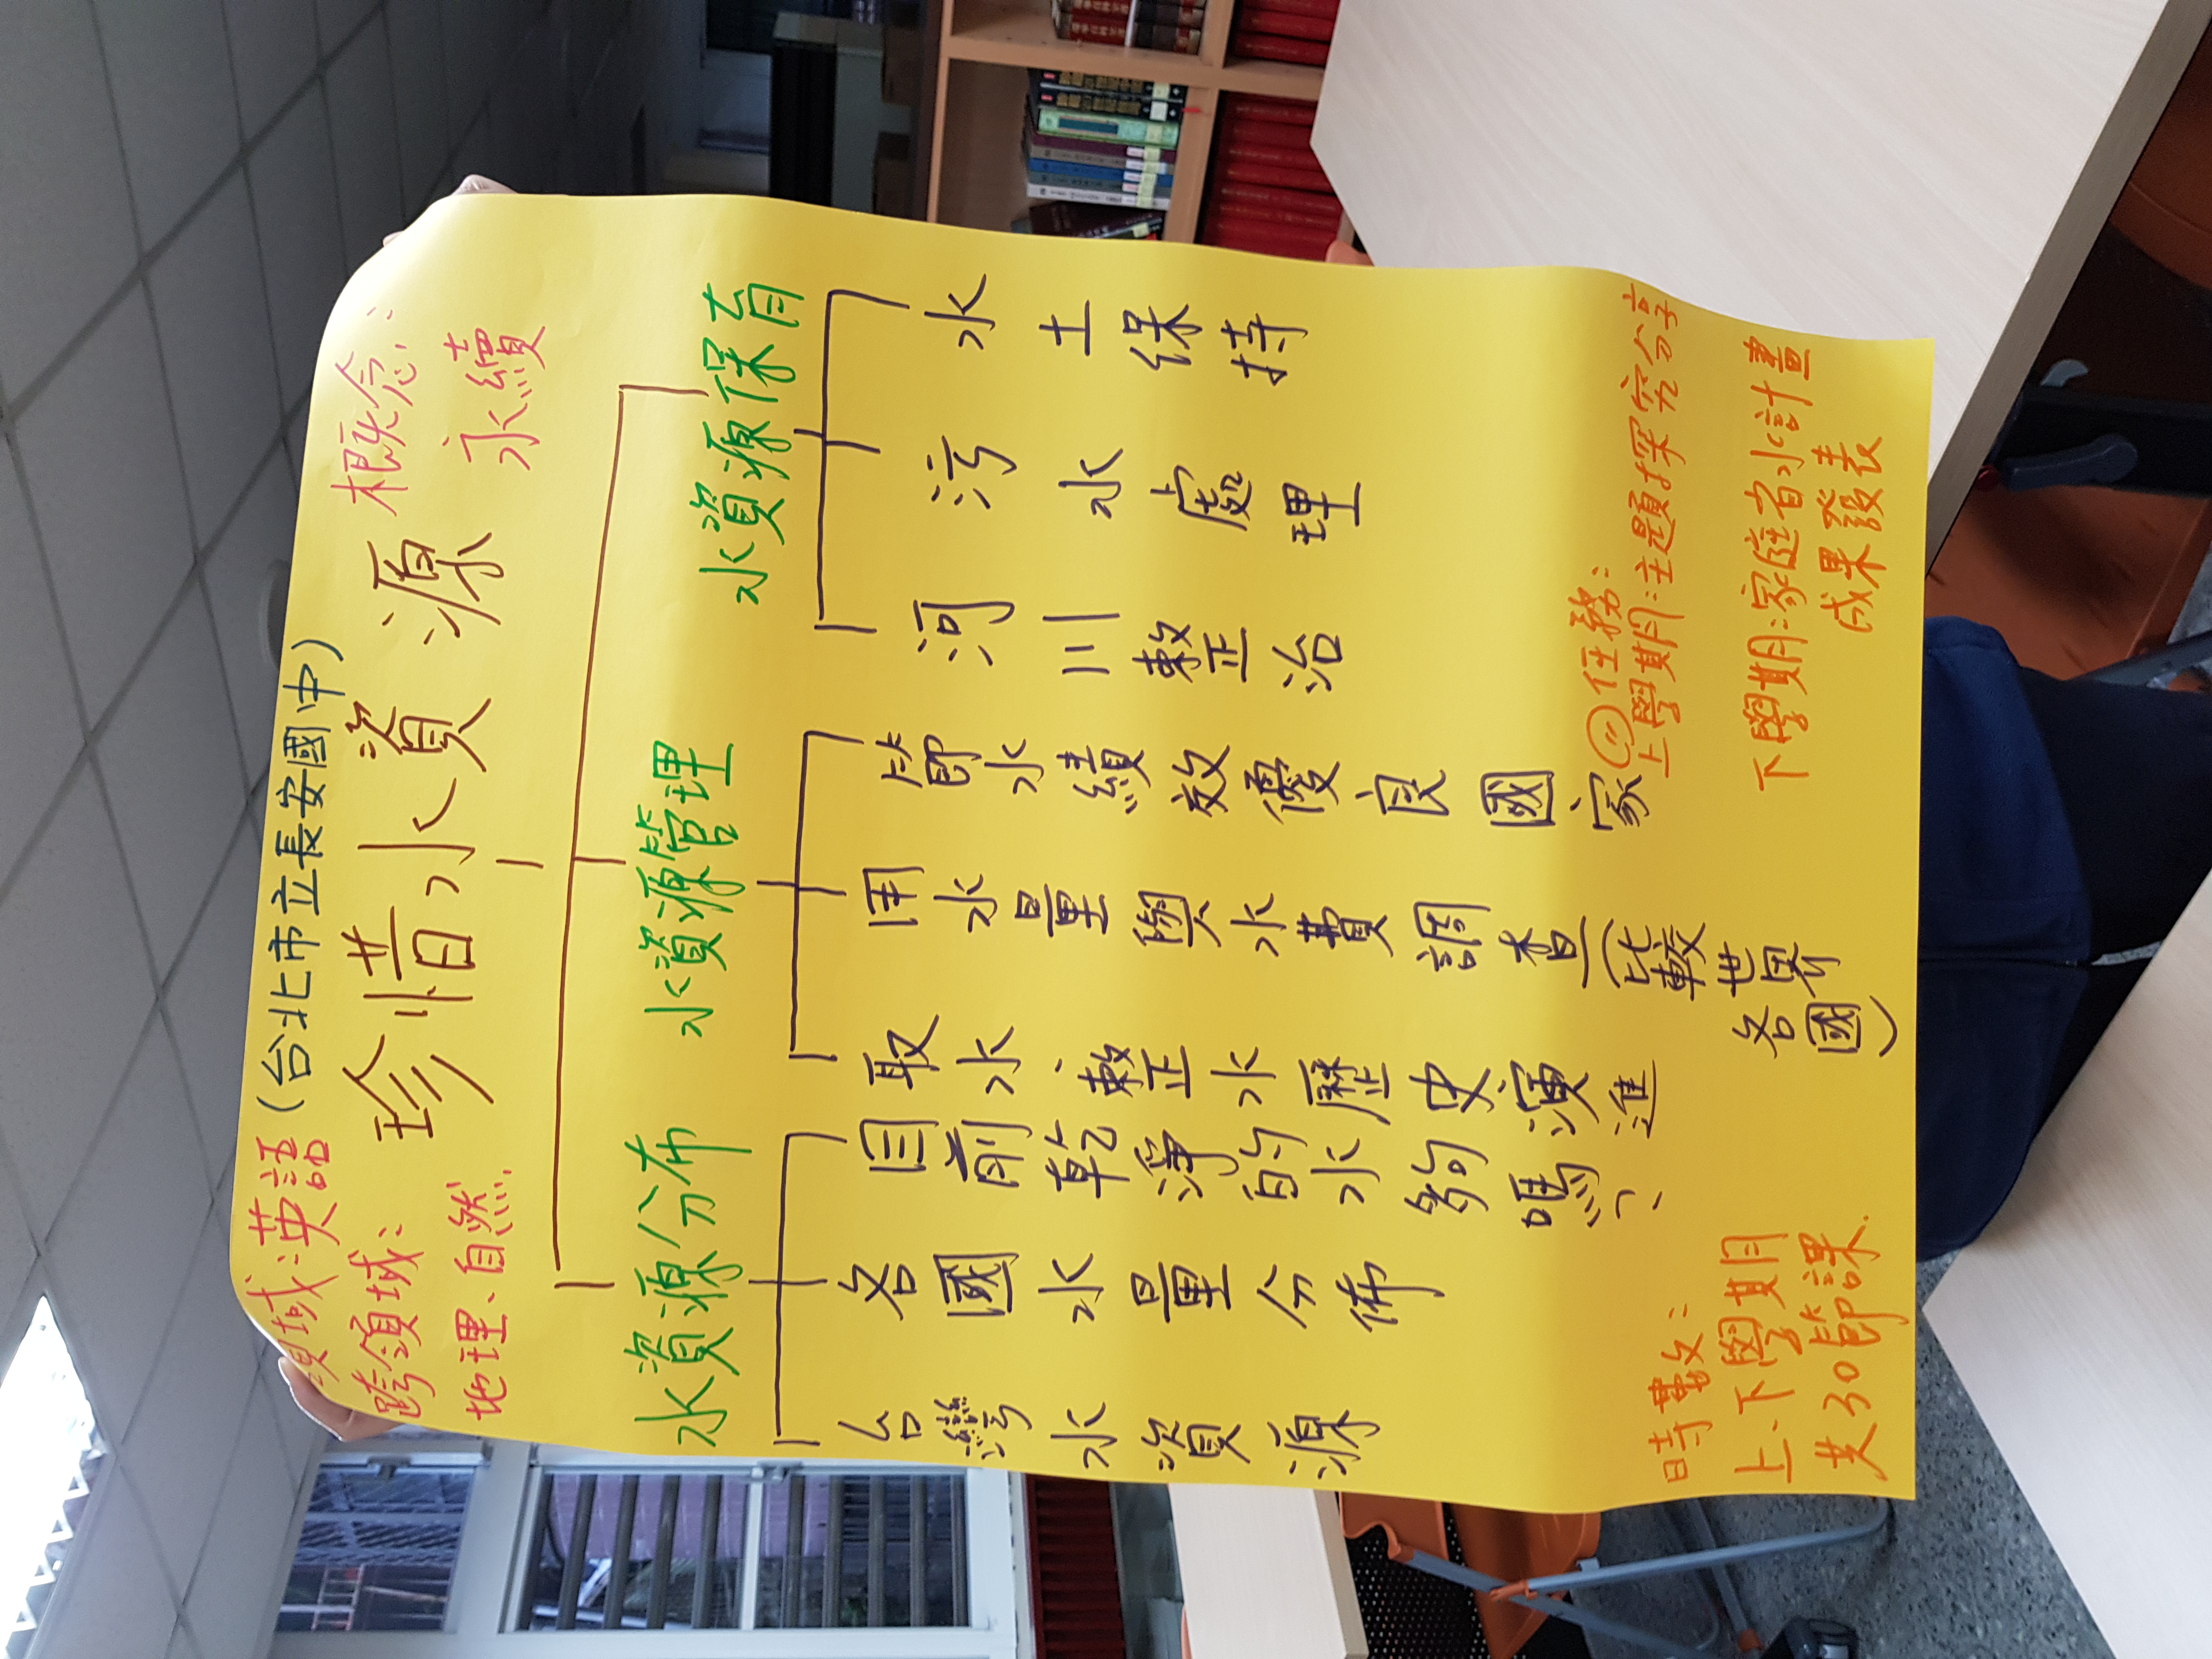 領域:英語 (台北市立長安國中)
跨領域:
地理、自然
珍惜水資源
概念:
永續
水資源分布
水資源管理
水資源保育
台灣水資源
各國水量分佈
目前乾淨的水夠嗎?
取水、整水歷史演進
用水量與水費調查(比較世界各國)
節水績效優良國家
河川整治
污水處理
水土保持
時數:
上、下學期
共30節課
任務:
上學期:主題探究分享
下學期:家庭省水計畫
成果發表